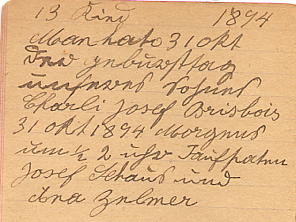 13 Kind 1894
Mankato 31 Okt
Der geburtstag
unseres Sohnes
Charli Josef Brisbois
31 okt 1894 Morgens
um ½ 2 uhr Taufpaten
Josef Schaus und
Ana Zelmer